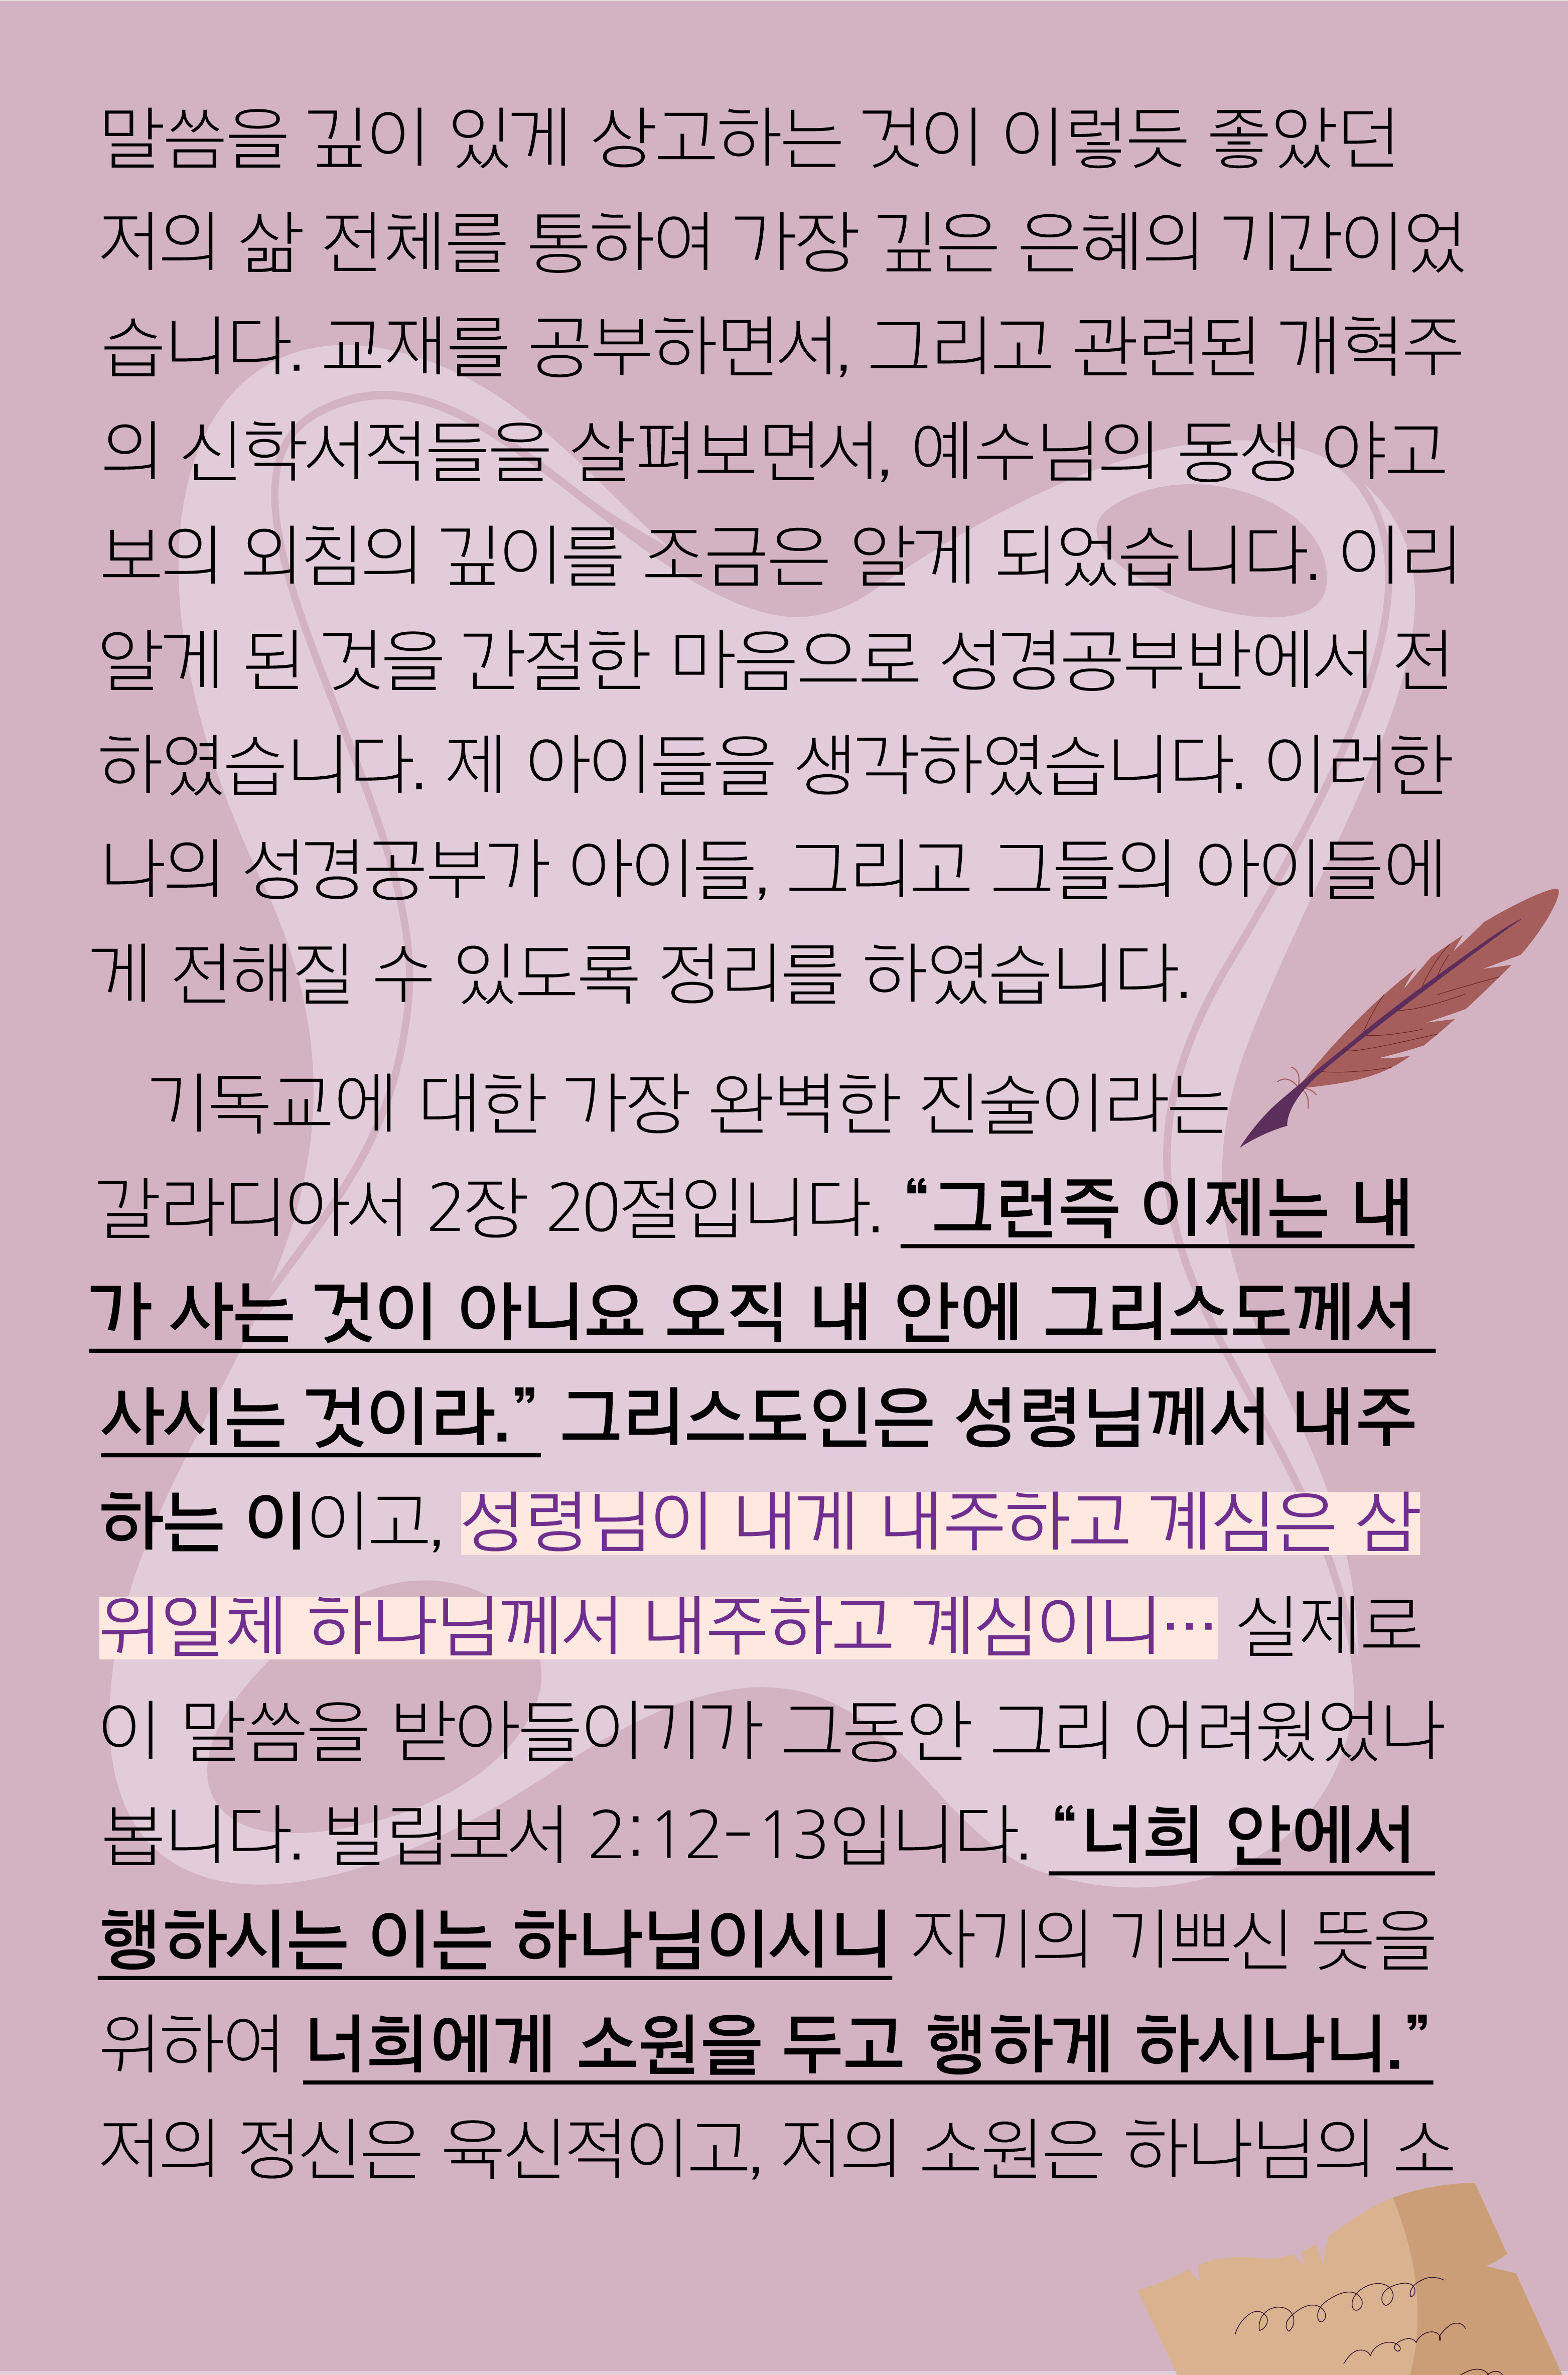 말씀을 깊이 있게 상고하는 것이 이렇듯 좋았던
저의 삶 전체를 통하여 가장 깊은 은혜의 기간이었
습니다. 교재를 공부하면서, 그리고 관련된 개혁주
의 신학서적들을 살펴보면서, 예수님의 동생 야고
보의 외침의 깊이를 조금은 알게 되었습니다. 이리
알게 된 것을 간절한 마음으로 성경공부반에서 전
하였습니다. 제 아이들을 생각하였습니다. 이러한
나의 성경공부가 아이들, 그리고 그들의 아이들에
게 전해질 수 있도록 정리를 하였습니다.
기독교에 대한 가장 완벽한 진술이라는
갈라디아서 2장 20절입니다. “그런즉 이제는 내
가 사는 것이 아니요 오직 내 안에 그리스도께서
사시는 것이라.” 그리스도인은 성령님께서 내주
하는 이이고, 성령님이 내게 내주하고 계심은 삼
위일체 하나님께서 내주하고 계심이니… 실제로
이 말씀을 받아들이기가 그동안 그리 어려웠었나
봅니다. 빌립보서 2:12-13입니다. “너희 안에서
행하시는 이는 하나님이시니 자기의 기쁘신 뜻을
위하여 너희에게 소원을 두고 행하게 하시나니.”
저의 정신은 육신적이고, 저의 소원은 하나님의 소